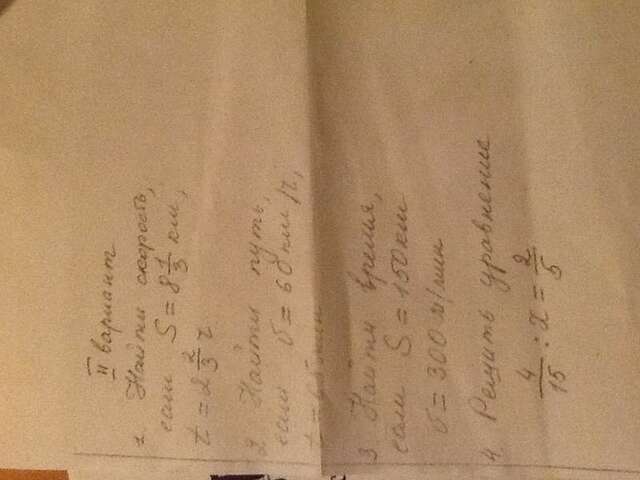 II вариант
1. Найти скорость,
если S = 8 1/3 км,
t = 2 2/3 ч
2. Найти путь,
если v = 60 км/ч,
t = мин
3 Найти время,
если S = 150 км
v = 300 м/мин
4. Решить уравнение
4/15 : x = 2/5